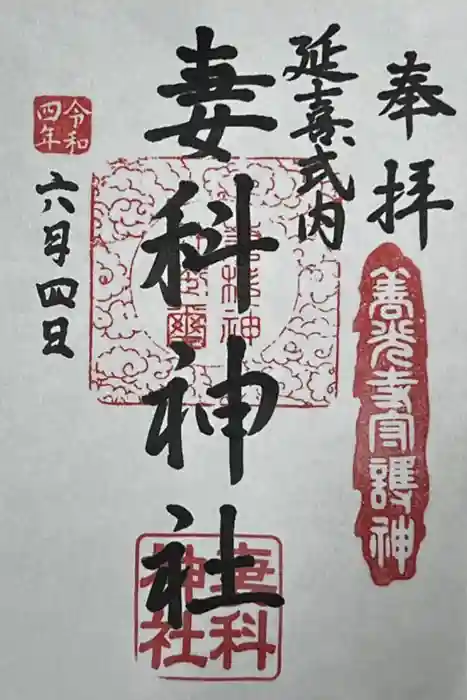 奉拝
善光寺守護神
延喜式内
妻科神社
妻科
神社
令和
四年
六月四日